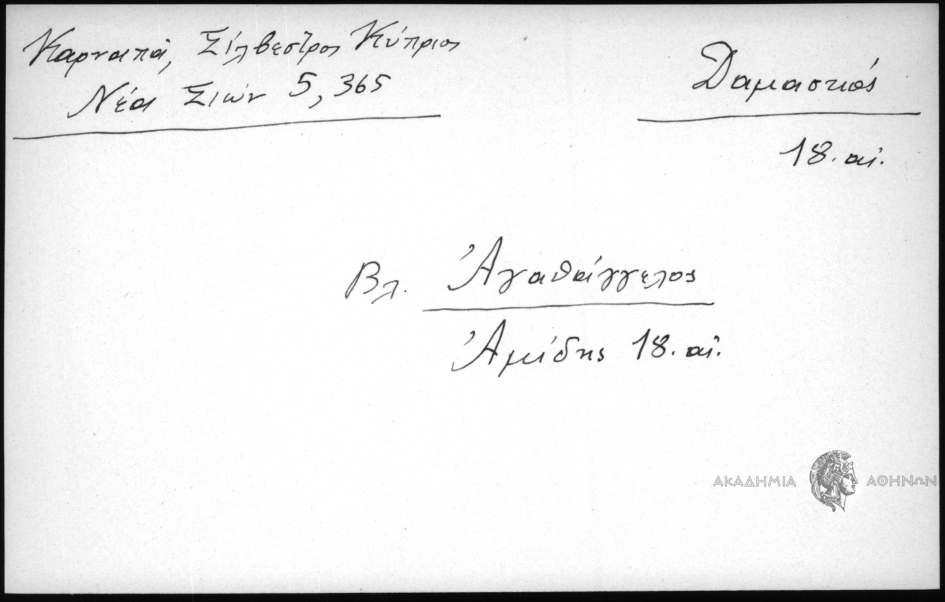 Καρναπᾶ, Σίλβεστρος Κύπριος
Νέα Σιών 5, 365
Δαμασκός
18. αἰ.
Βλ. Ἀγαθάγγελος
Ἀμίδης 18. αἰ.
ΑΚΑΔΗΜΙΑ ΑΘΗΝΩΝ